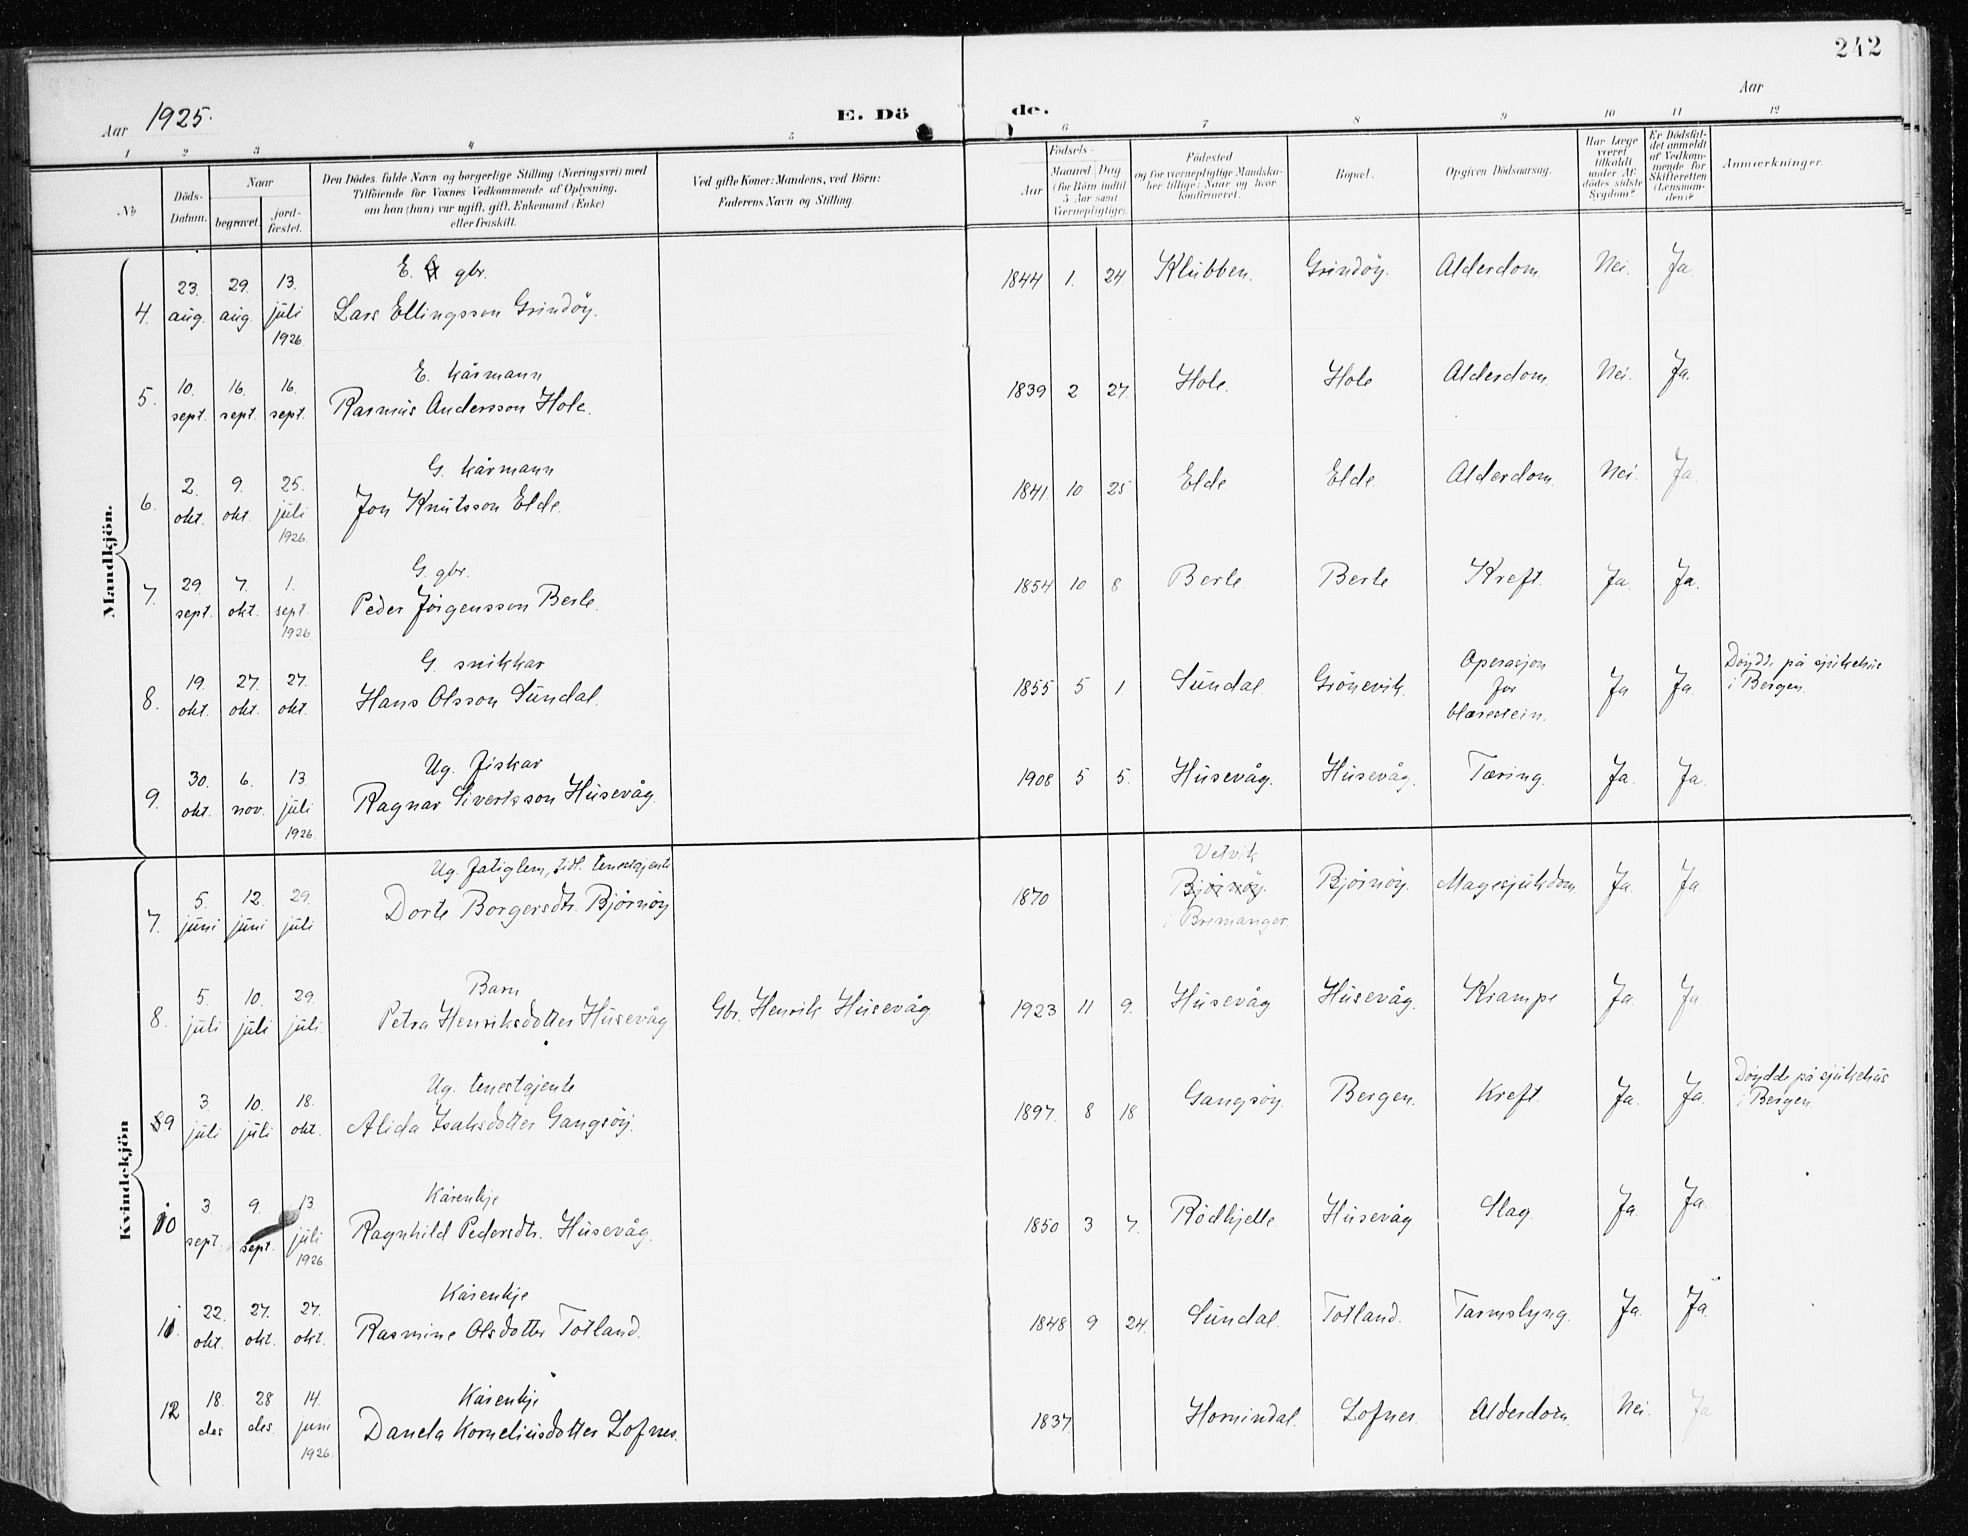 242
Aar 1925.
E. Dö de.
Aar
1 2 3 4 5 6 7 8 9 10 11 12
№
Döds-Datum.
Naar
begravet.
jord-fæstet.
Den Dödes fulde Navn og borgerlige Stilling (Næringsvei) med
Tilföiende for Voxnes Vedkommende af Oplysning,
om han (hun) var ugift, gift, Enkemand (Enke)
eller fraskilt.
Ved gifte Koner: Mandens, ved Börn:
Faderens Navn og Stilling.
Födsels-
Aar
Maaned. Dag
(for Börn indtil
5 Aar samt
Værnepligtige).
Födested
og for værnepligtige Mandska-
ber tillige: Naar og hvor
konfirmeret.
Bopæl.
Opgiven Dödsaarsag.
Har Læge
været
tilkaldt
under Af-
dödes sidste
Sygdom?
Er Dödsfal-
det anmeldt
af Vedkom-
mende for
Skifteretten
(Lensman-
den)?
Anmærkninger.
Mandkjön.
4. 23. aug. 29. aug. 13. juli 1926 E. gbr. Lars Ellingsson Grindöy. 1844 1. 24. Klubben. Grindöy. Alderdom. Nei. Ja.
5. 10. sept. 16. sept. 16. sept. E. kårmann Rasmus Andersson Hole. 1839 2 27. Hole. Hole Alderdom. Nei. Ja.
6. 2. okt. 9. okt. 25. juli 1926. G. kårmann Jon Knutsson Elde. 1841. 10 25 Elde Elde. Alderdom. Nei. Ja.
7. 29. sept. 7. okt. 1. sept. 1926 G. gbr. Peder Jörgensson Berle. 1854 10 8. Berle Berle Kreft. Ja. Ja.
8. 19. okt. 27. okt. 27. okt. G. snikkar Hans Olsson Sundal. 1855 5 1. Sundal. Grönevik. Operasjon for blærestein. Ja Ja. Döydde på sjukehus i Bergen.
9. 30. okt. 6. nov. 13. juli 1926. Ug. fiskar Ragnar Sivertsson Husevåg. 1908 5 5. Husevåg. Husevåg. Tæring. Ja. Ja.
Kvindekjön
7. 5. juni 12. juni 29. juli Ug. fatiglem, tidl. tenestgjente Dorte Borgersdtr. Bjørnöy 1870 Vetvik Bjørnöy. i Bremanger. Bjørnöy. Magesjukdom Ja. Ja.
8. 5. juli 10. juli 29. juli. Barn Petra Henriksdotter Husevåg Gbr. Henrik Husevåg 1923 11 9. Husevåg Husevåg. Krampe Ja. Ja
9 3. juli 10. juli 18. okt. Ug. tenestgjente Alida Isaksdotter Gangsöy. 1897. 8 18 Gangsöy. Bergen. Kreft. Ja. Ja. Döydde på sjukehus i Bergen.
10 3. sept. 9. sept. 13. juli 1926. Kårenkje Ragnhild Pedersdtr. Husevåg. 1850 3 7. Rödhjelle. Husevåg Slag. Ja. Ja.
11. 22. okt. 27. okt. 27. okt. Kårenkje Rasmine Olsdotter Totland. 1848 9 24. Sundal. Totland. Tarmslyng. Ja. Ja.
12 18. des 28 des. 14. juni 1926. Kårenkje Danela Korneliusdotter Lofnes. 1837. Hornindal. Lofnes. Alderdom. Nei. Ja